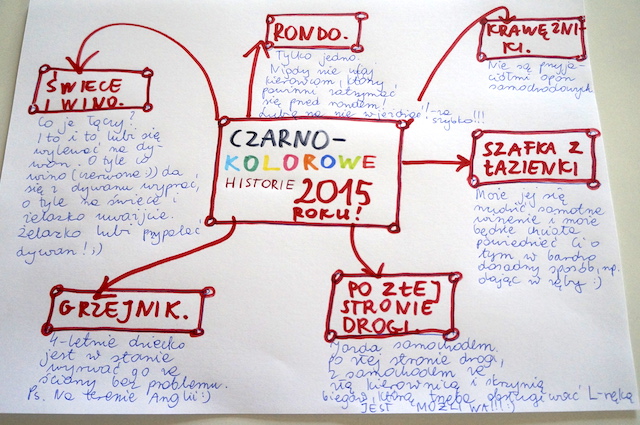 CZARNO-
KOLOROWE
HISTORIE 2015
ROKU!
ŚWIECE
I WINO.
Co je łączy?
I to i to lubi się
wylewać na dy-
wan. O tyle co
wino (czerwone:)) da
się z dywanu wyprać,
o tyle na świecę i
żelazko uważajcie.
Żelazko lubi przypalać
dywan! ;)
RONDO.
Tylko jedno.
Nigdy nie ufaj
kierowcom, który
powinni zatrzymać
się przed rondem!
Lubą na nie wjeżdżać!-za
szybko!!!
KRAWĘŻNI-
KI.
Nie są przyja-
ciółmi opon
samochodowych
SZAFKA Z
ŁAZIENKI
Może jej się
nudzić samotne
wiszenie i może
będzie chciała
powiedzieć Ci o
tym w bardzo
dosadny sposób, np.
dając w zęby :)
GRZEJNIK.
4-letnie dziecko
jest w stanie
wyrwać go ze
ściany bez problemu.
Ps. Na terenie Anglii:)
PO ZŁEJ
STRONIE
DROGI.
Jazda samochodem.
Po złej stronie drogi,
z samochodem ze
złą kierownicą i skrzynią
biegów, którą trzeba obsługiwać L-ręką
JEST MOŻLIWA!!!:)